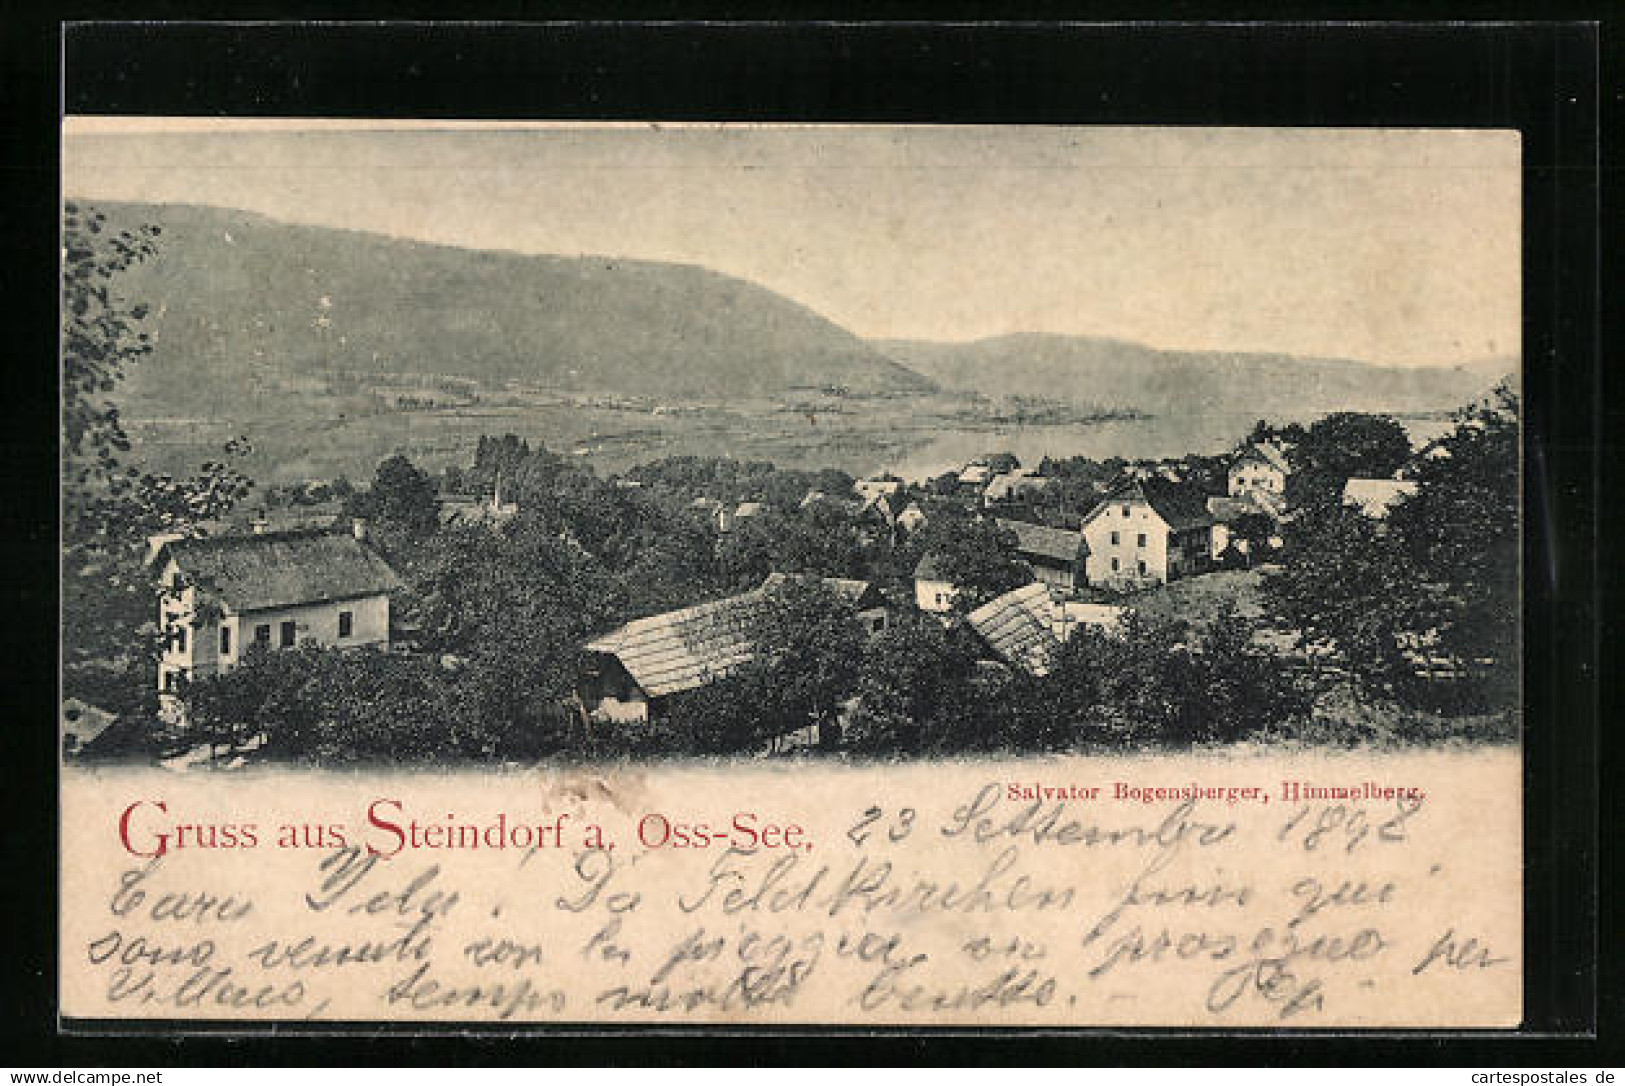 Salvator Bogensberger, Himmelberg.
Gruss aus Steindorf a. Oss-See,
23 Settembre 1898
Cara . Da Feldkirchen fin qui
sono venuti con la pioggia, or proseguo per
Villaco, tempo molto brutto. - Pep.
cartespostales de